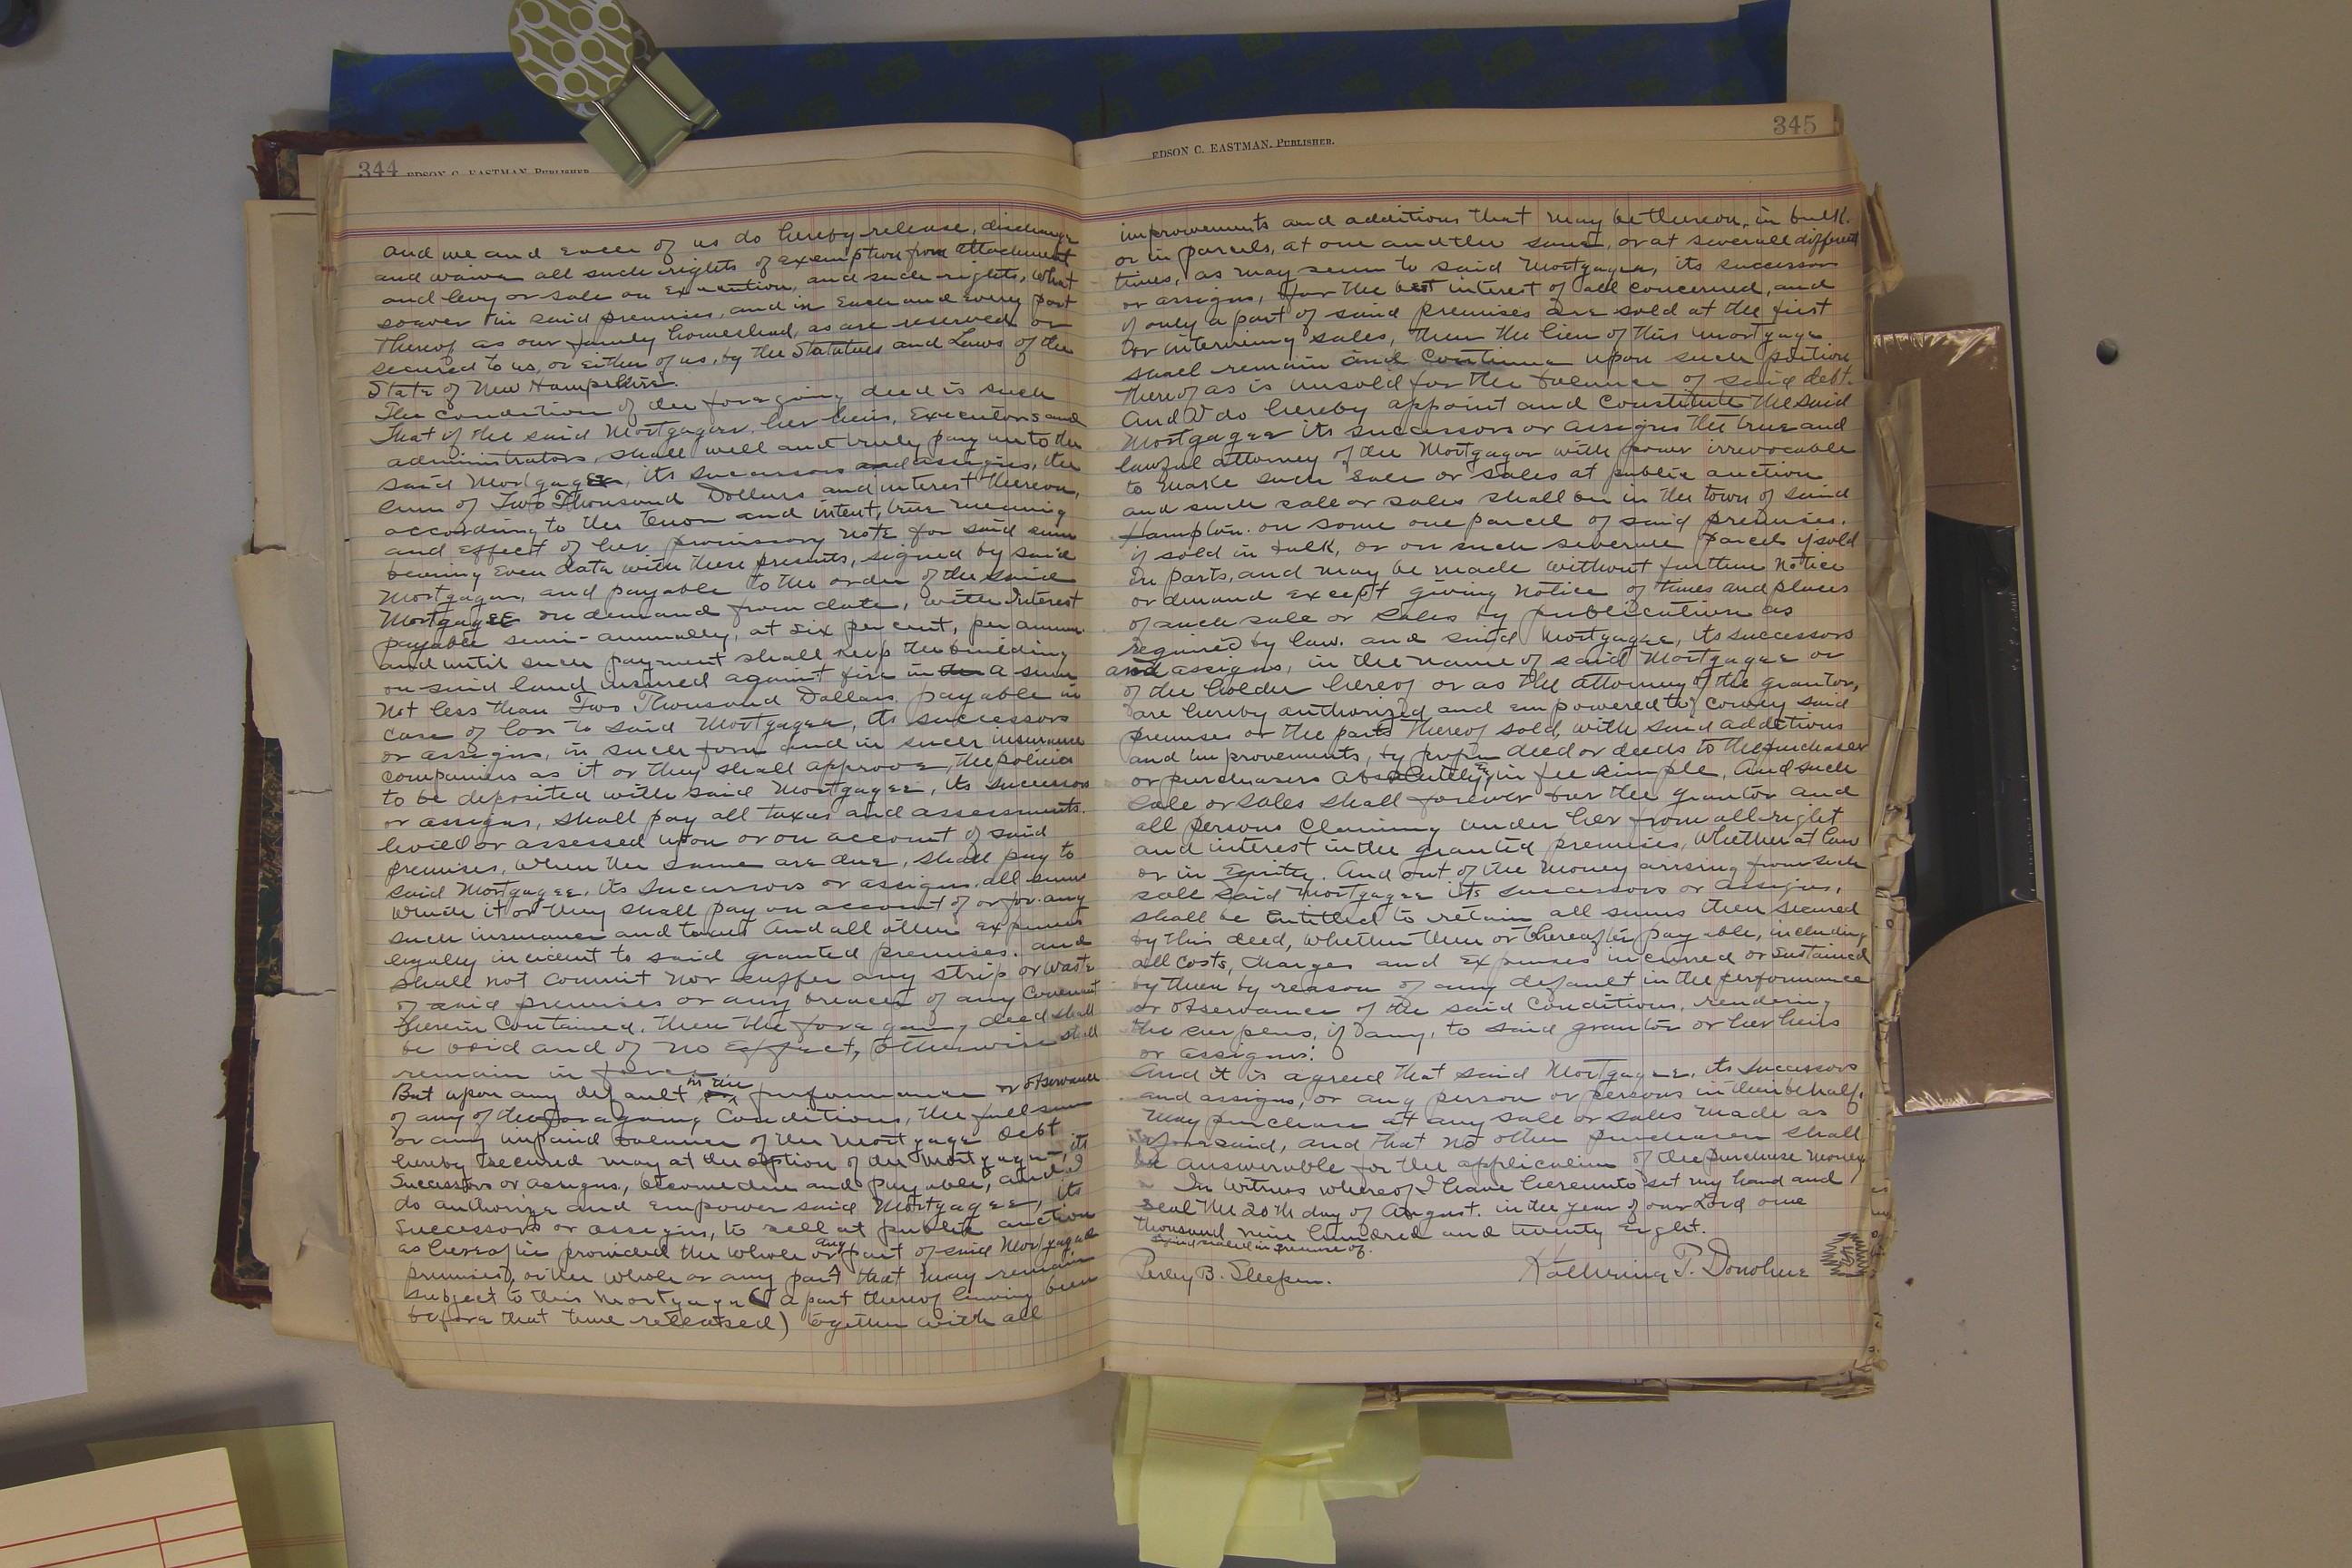 344 EDSON C. EASTMAN, PUBLISHER.
and we and each of us do hereby release, discharge
and waive all such rights of exemption from attachment
and levy or sale on execution, and such rights, what
soever in said premises, and in each and every part
thereof as our family homestead, as are reserved or
secured to us, or either of us, by the Statutes and Laws of the
State of New Hampshire.
The condition of the foregoing deed is such
That if the said Mortgagor, her heirs, Executors and
administrators, shall well and truly pay unto the
said Mortgagee, its successors and assigns, the
sum of Two Thousand Dollars and interest thereon,
according to the tenor and intent, true meaning
and effect of her promissory note for said sum
bearing even date with these presents, signed by said
Mortgagor, and payable to the order of the said
Mortgagee on demand from date, with interest
payable semi-annually, at six per cent, per annum.
and until such payment shall keep the building
on said land insured against fire in the a sum
not less than Two Thousand Dollars, payable in
case of loss to said Mortgagee, its successors
or assigns, in such form and in such insurance
companies as it or they shall approve, the policies
to be deposited with said Mortgagee, its successors
or assigns, shall pay all taxes and assessments.
levied or assessed upon or on account of said
premises, when the same are due, shall pay to
said Mortgagee, its successors or assigns, all sums
which it or they shall pay on account of or for any
such insurance and taxes And all other expenses
legally incident to said granted premises. and
shall not commit nor suffer any strip or waste
of said premises or any breach of any Covenant
herein contained, then the foregoing deed shall
be void and of no effect, otherwise shall
remain in force.
But upon any default in the performance or observance
of any of the foregoing Conditions, the full sum
or any unpaid balance of the Mortgage Debt
hereby secured may at the option of the Mortgagee, its
successors or assigns, become due and payable, and I
do authorize and empower said Mortgagee, its
successors or assigns, to sell at public auction
as hereafter provided the whole or any part of said Mortgaged
premises, or the whole or any part that may remain
subject to this Mortgage (a part thereof having been
before that time released) together with all
EDSON C. EASTMAN, PUBLISHER. 345
improvements and additions that may be thereon, in bulk.
or in parcels, at one and the same, or at several different
times, as may seem to said Mortgagee, its successors
or assigns, for the best interest of all concerned, and
if only a part of said premises are sold at the first
or intervening sales, then the lien of this mortgage
shall remain and continue upon such portion
thereof as is unsold for the balance of said debt.
And I do hereby appoint and constitute the said
Mortgagee its successors or assigns the true and
lawful attorney of the Mortgagor with power irrevocable
to make such sale or sales at public auction
and such sale or sales shall be in the town of said
Hampton. on some one parcel of said premises.
if sold in bulk, or on such several parcels if sold
in parts, and may be made without further notice
or demand except giving notice of times and places
of such sale or sales by publication as
required by law. and said Mortgagee, its successors
and assigns, in the name of said Mortgagee or
of the holder hereof or as the attorney of the grantor,
are hereby authorized and empowered to convey said
premises or the parts thereof sold, with said additions
and improvements, by proper deed or deeds to the purchaser
or purchasers absolutely in fee simple. And such
sale or sales shall forever bar the grantor and
all persons claiming under her from all right
and interest in the granted premises, whether at law
or in Equity. And out of the money arising from such
sale said mortgagee its successors or assigns,
shall be entitled to retain all sums then secured
by this deed, whether then or thereafter payable, including
all costs, charges and expenses incurred or sustained
by them by reason of any default in the performance
or observance of the said conditions, rendering
the surpens, if any, to said grantor or her heirs
or assigns.
And it is agreed that said Mortgagee, its successors
and assigns, or any person or persons in their behalf,
may purchase at any sale or sales made as
aforesaid, and that no other purchaser shall
be answerable for the application of the purchase money.
In witness whereof I have hereunto set my hand and
seal the 20th day of August. in the year of our Lord one
thousand nine hundred and twenty eight.
in presence of.
Perley B. Sleeper. Katherina T. Donohue